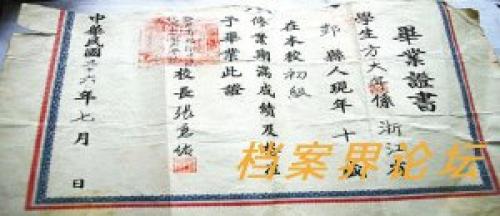 畢業證書
學生方大年係浙江省
縣人現年十
在本校初級
修業期滿成績及格准
予畢業此證
校長張
中華民國 六年七月 日
档案界论坛